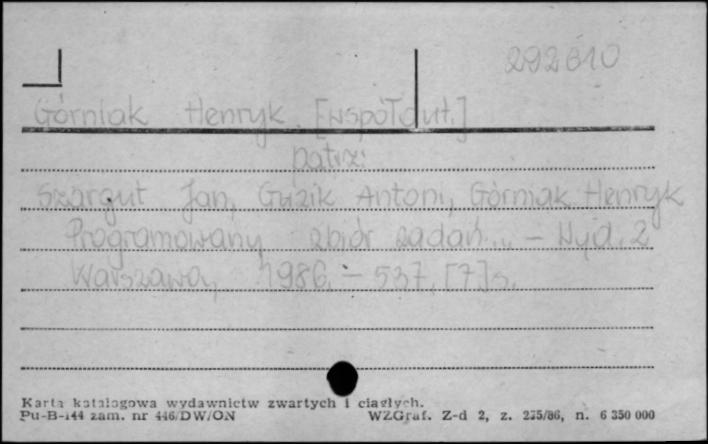 292610
Górniak Henryk. [współaut.]
patrz:
Szargut Jan, Guzik Antoni, Górniak Henryk
Programowany zbiór zadań... - Wyd. 2
Warszawa, 1986. - 537, [7] s.
Karta katalogowa wydawnictw zwartych i ciągłych.
Pu-B-144 zam. nr 446/DW/ON WZGraf. Z-d 2, z. 225/86, n. 6 350 000